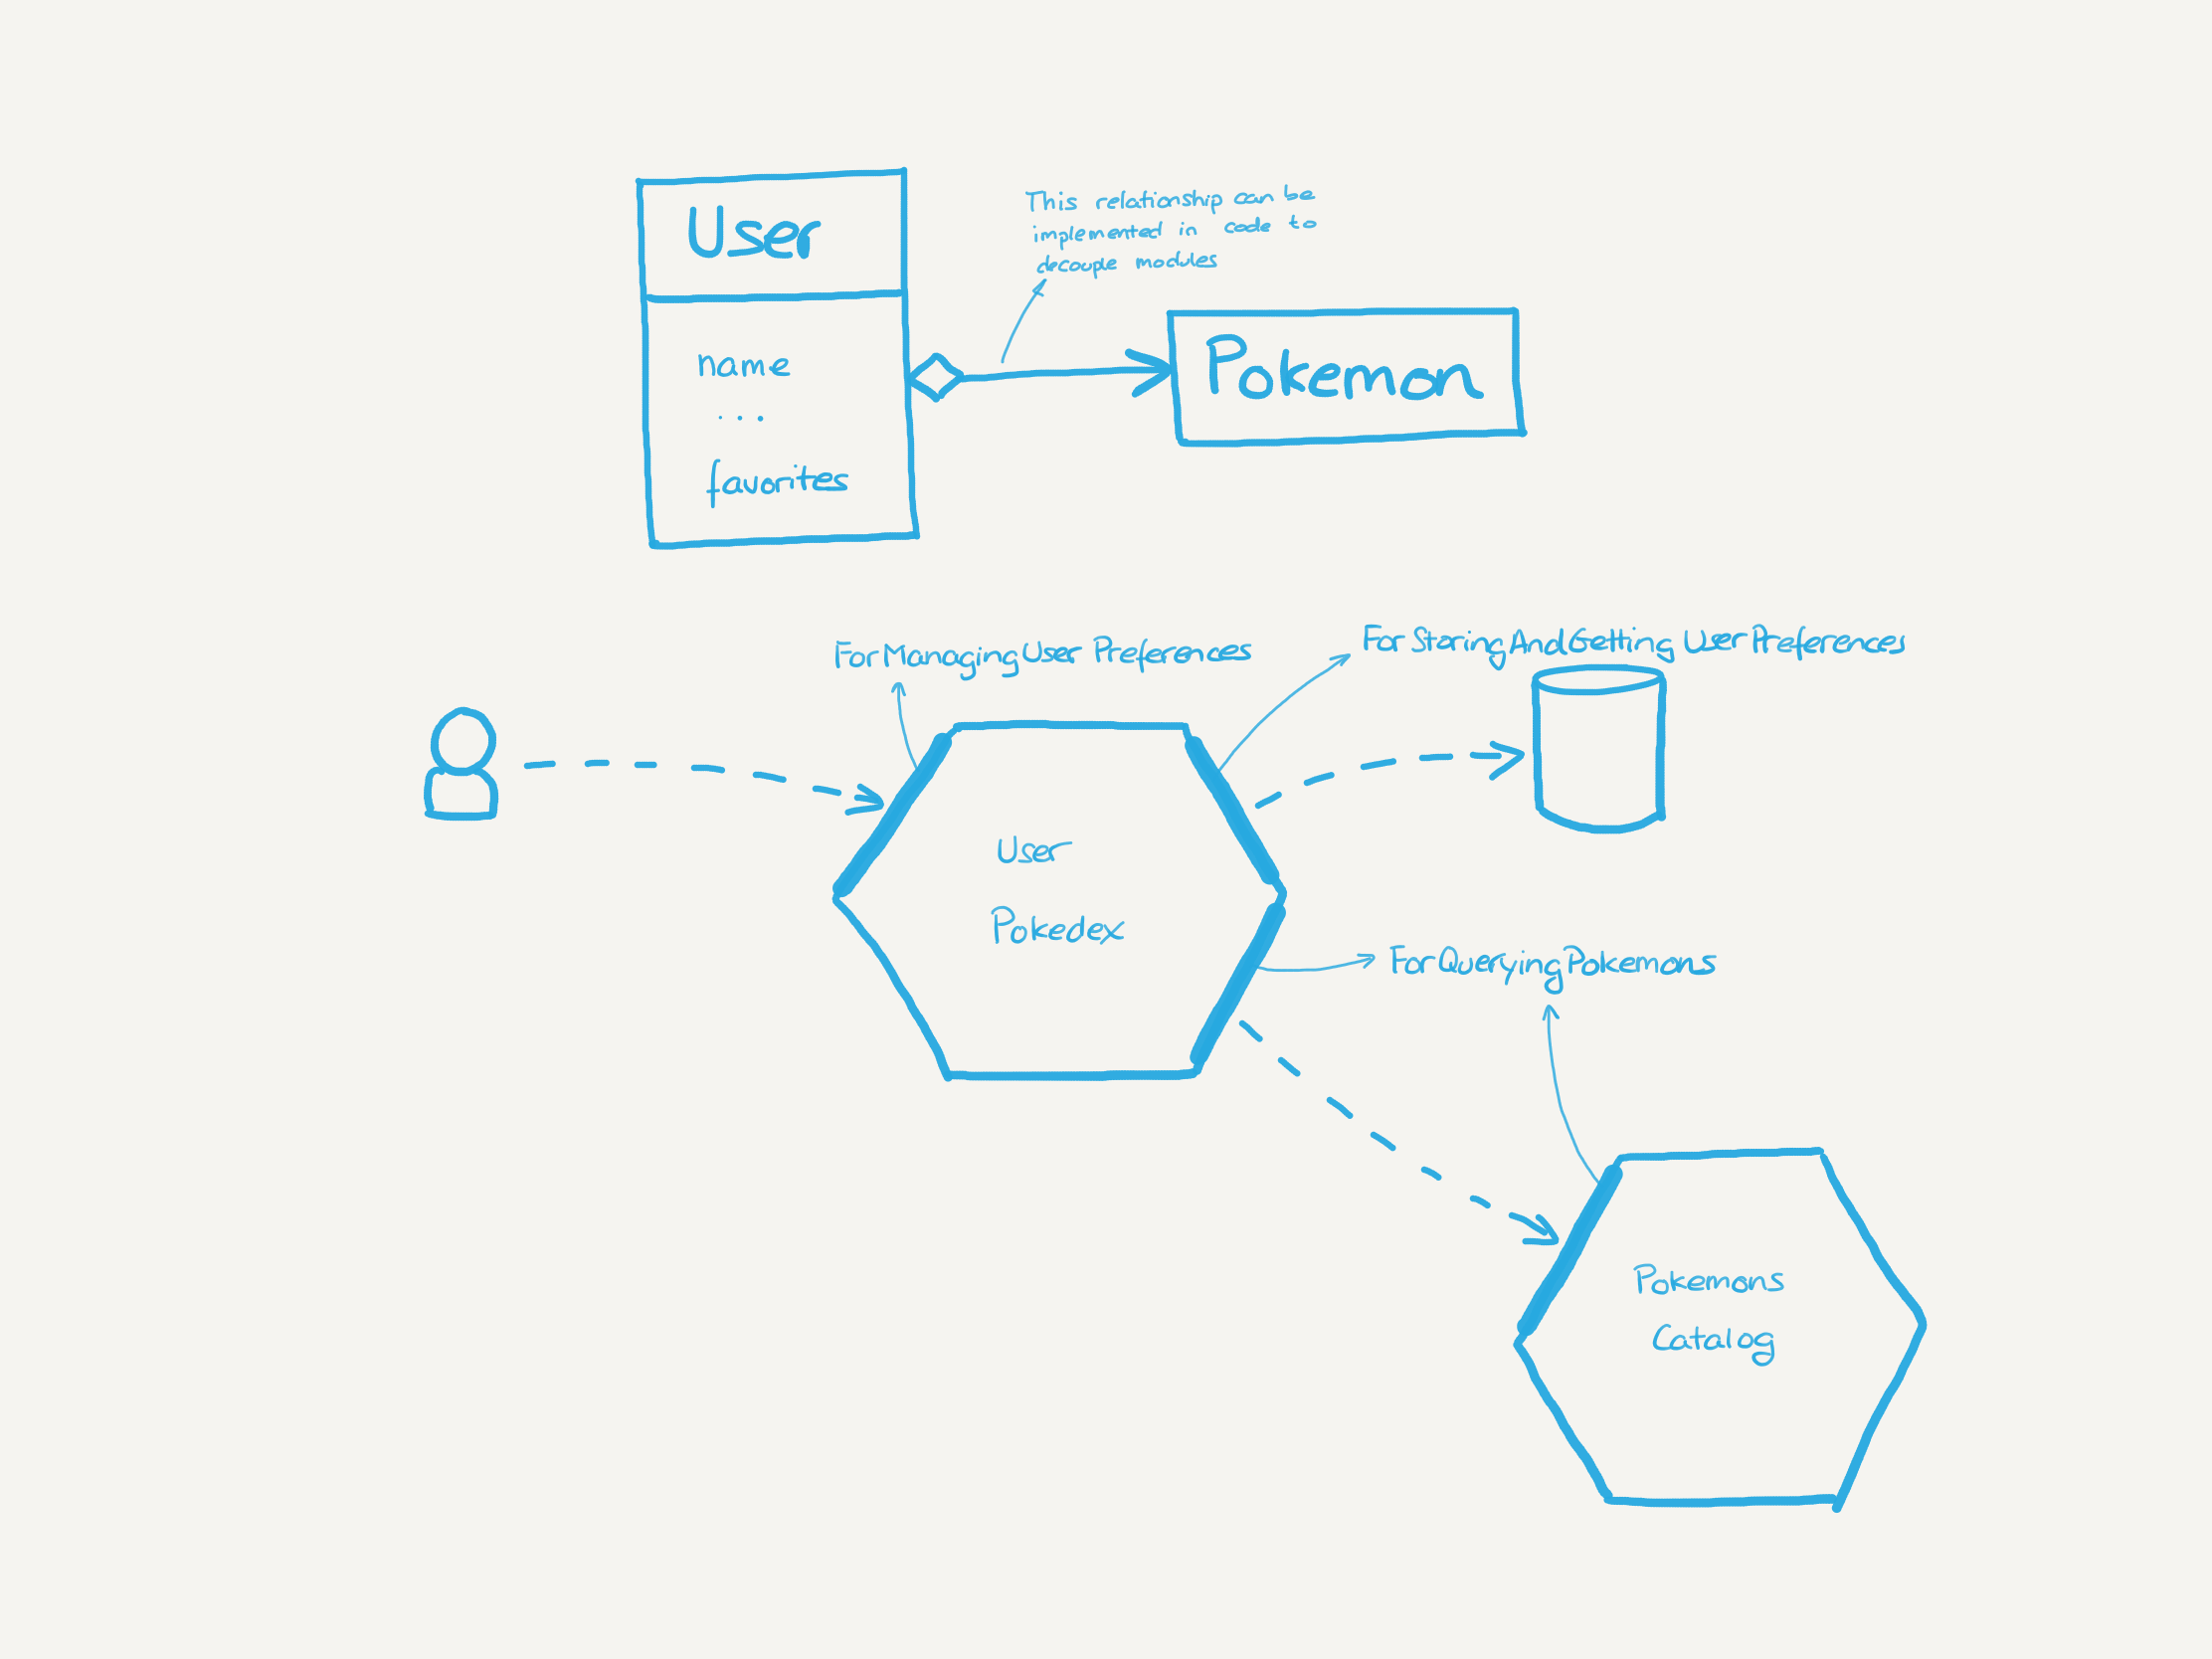 User
name
...
favorites
This relationship can be
implemented in code to
decouple modules
Pokemon
ForManagingUserPreferences
ForStoringAndGettingUserPreferences
User
Pokedex
ForQueryingPokemons
Pokemons
Catalog